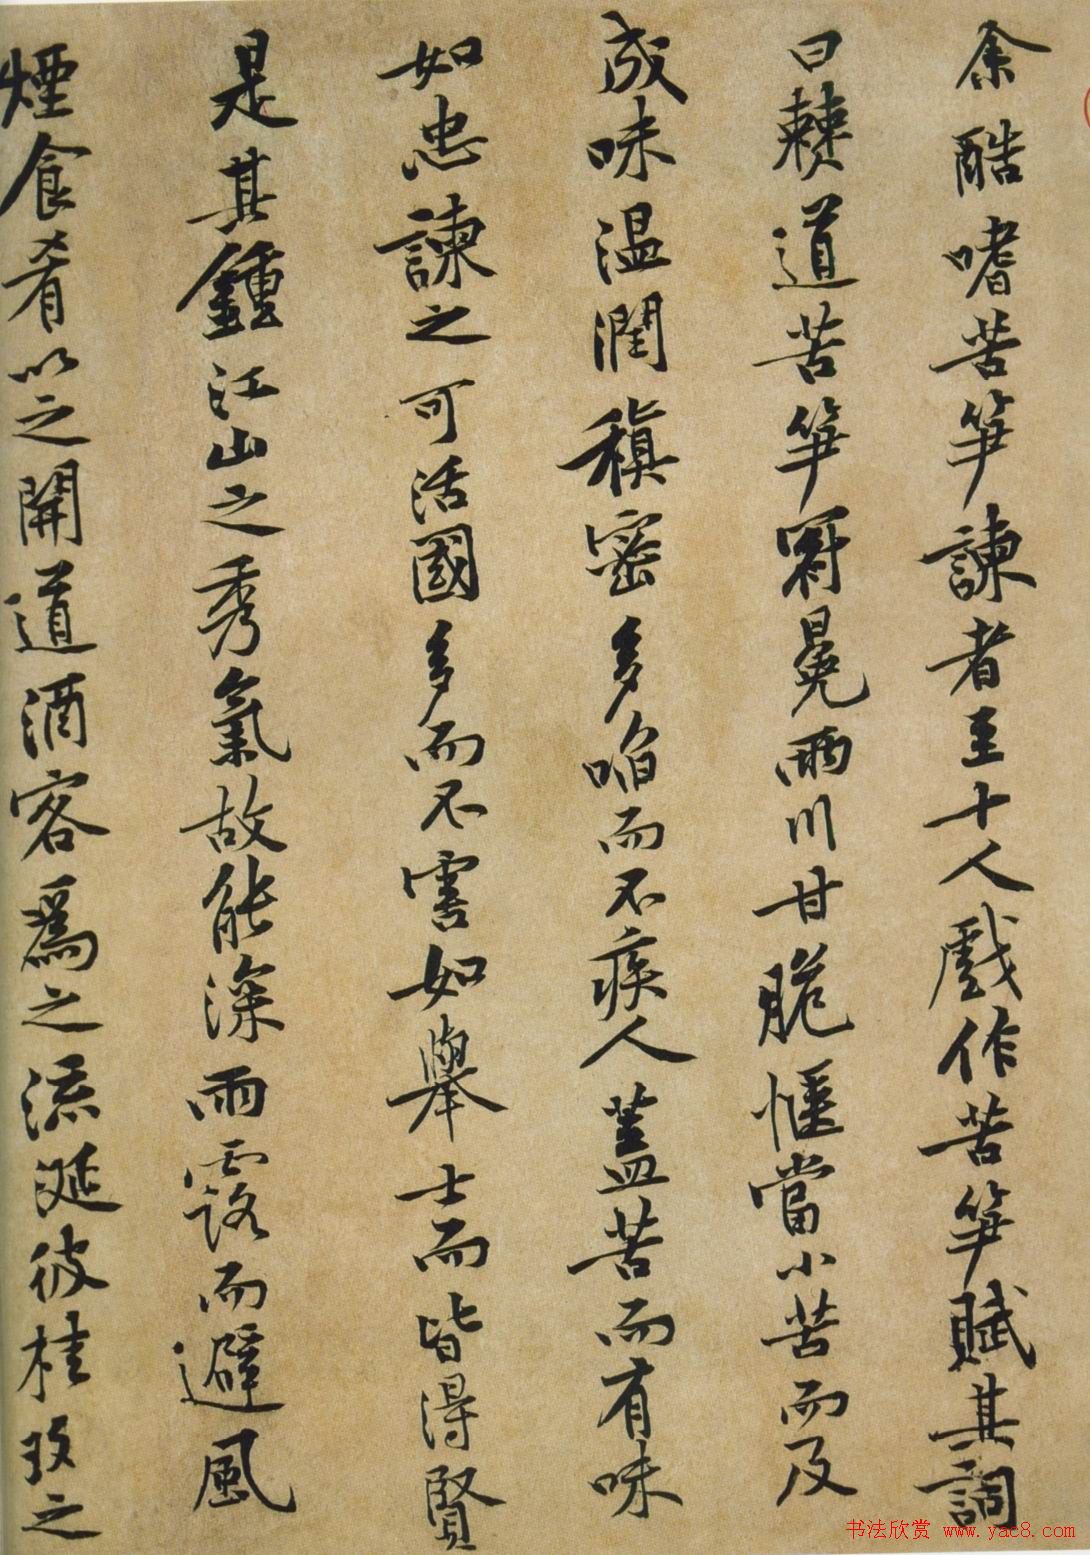 余酷嗜苦笋諫者至十人戲作苦笋賦其詞
曰僰道苦笋冠冕兩川甘脆愜當小苦而及
成味温潤稹密多啗而不疾人蓋苦而有味
如忠諫之可活國多而不害如舉士而皆得賢
是其鍾江山之秀氣故能深雨露而避風
煙食肴以之開道酒客爲之流涎彼桂玫之
书法欣赏 www.yac8.com